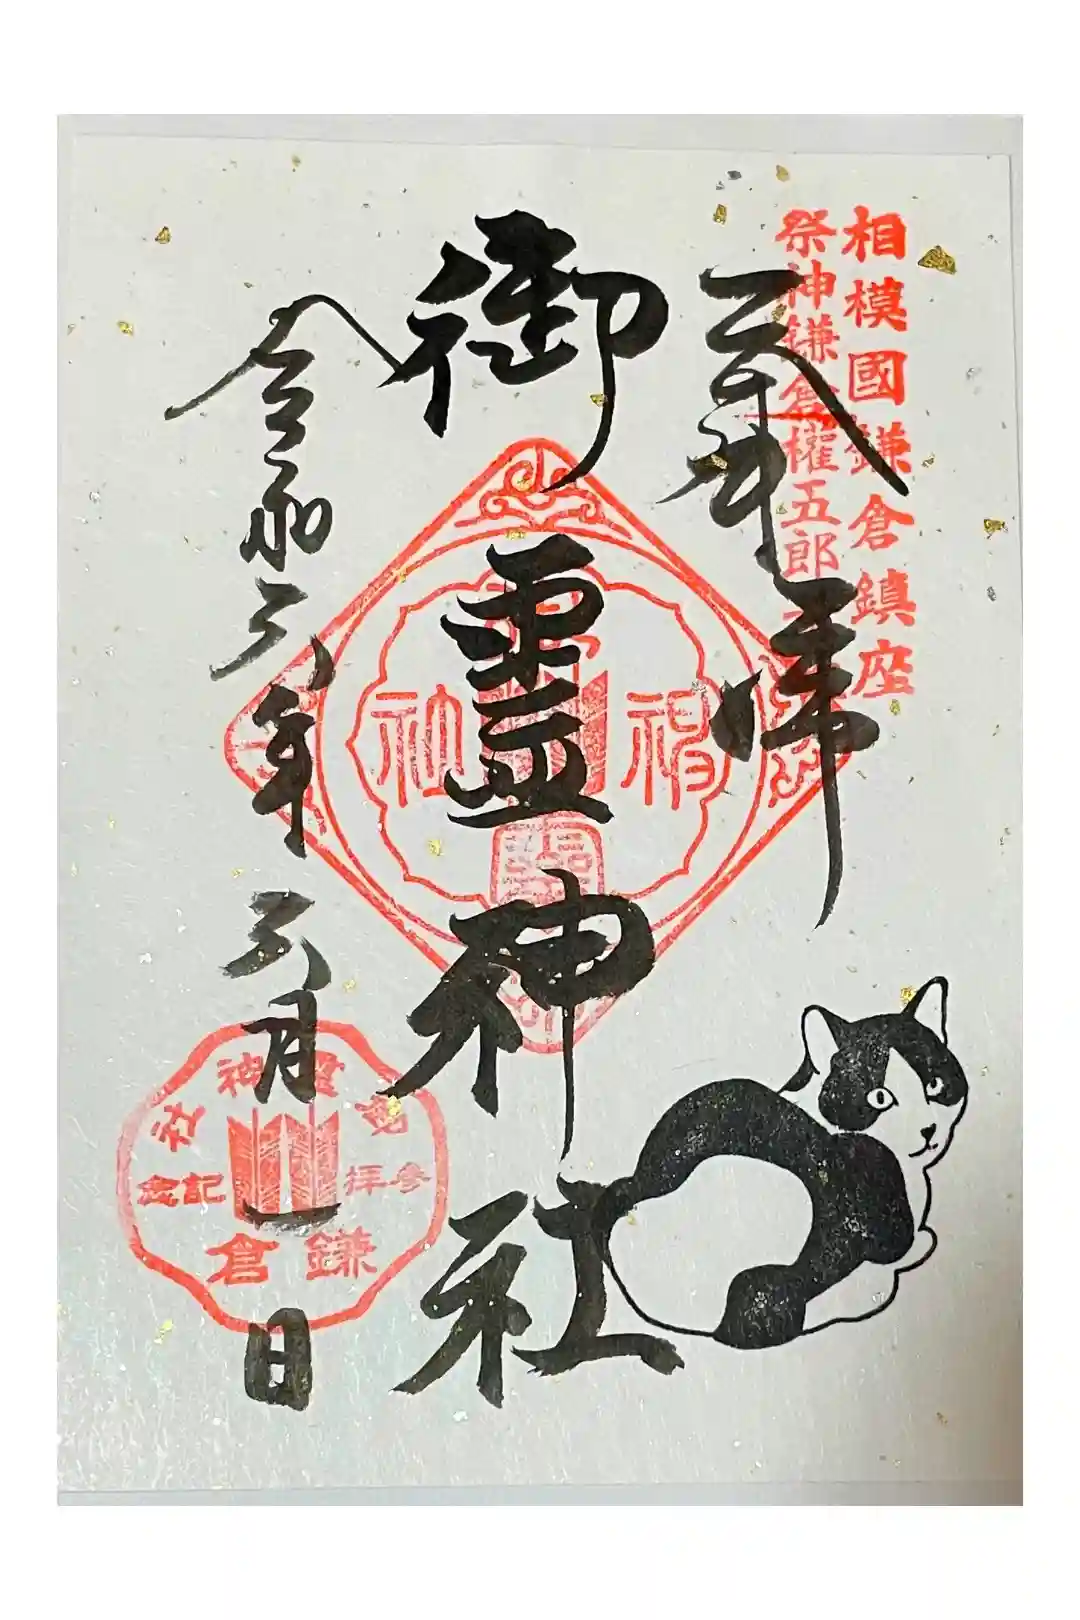 相模國鎌倉鎮座
祭神鎌倉權五郎
御霊神社
神社
令和 年
月
一日
御霊神社
参拝
記念
鎌倉